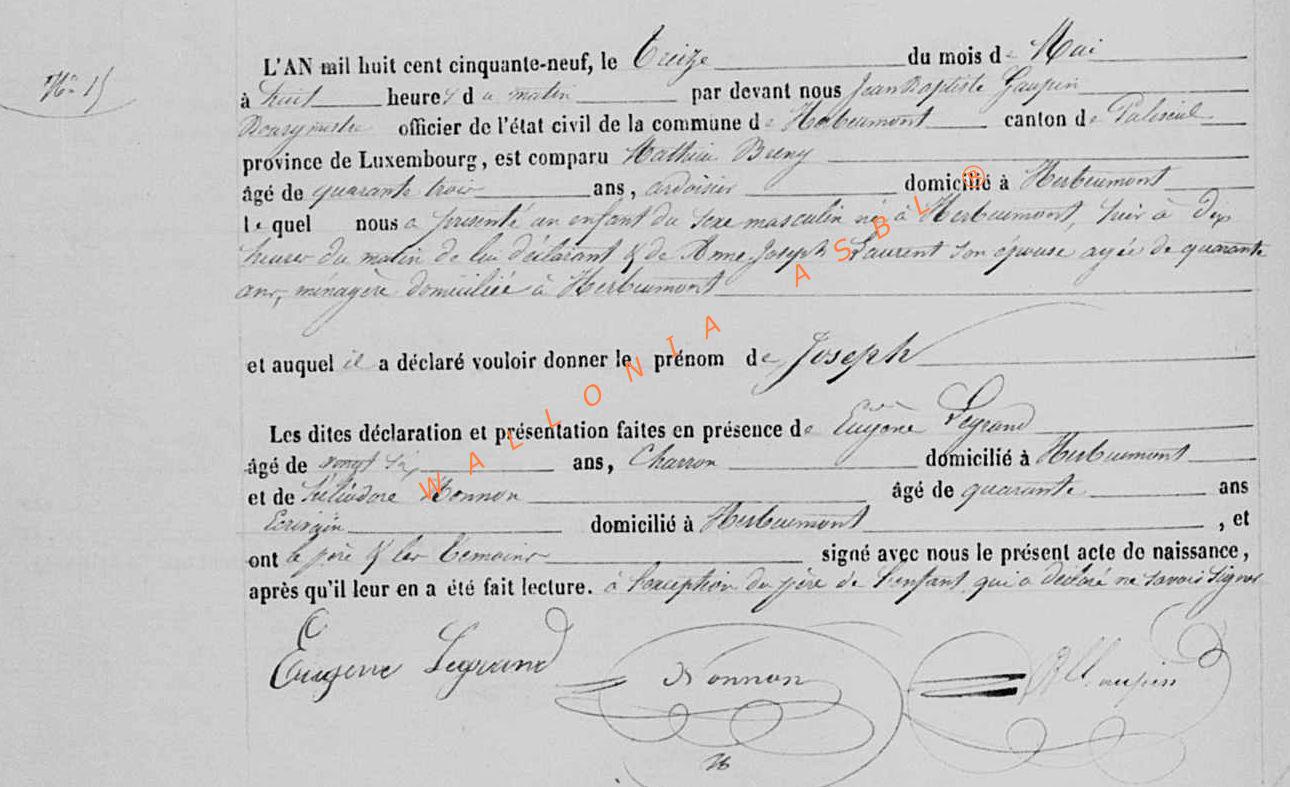 N° 15
L'AN mil huit cent cinquante-neuf, le treize du mois de Mai
à huit heures du matin par devant nous Jean Baptiste Gaupin
Bourgmestre officier de l'état civil de la commune de Herbeumont canton de Paliseul
province de Luxembourg, est comparu Mathieu Breny
âgé de quarante trois ans, ardoisier domicilié à Herbeumont
lequel nous a présenté un enfant du sexe masculin né à Herbeumont, hier à dix
heures du matin de lui déclarant & de Anne Joseph Laurent son épouse agée de quarante
ans, ménagère domiciliée à Herbeumont
et auquel il a déclaré vouloir donner le prénom de Joseph
Les dites déclaration et présentation faites en présence de Eugène Legrand
âgé de vingt six ans, Charron domicilié à Herbeumont
et de Héliodore Nonnon âgé de quarante ans
Ecrivain domicilié à Herbeumont, et
ont le père & les témoins signé avec nous le présent acte de naissance,
après qu'il leur en a été fait lecture. à l'exception du père de l'enfant qui a déclaré ne savoir signer
Eugene Legrand Nonnon Gaupin
WALLONIA ASBL ®